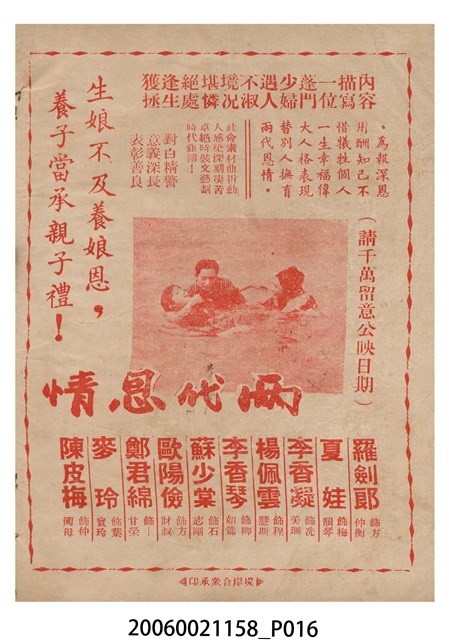 內容
描寫
一位
蓬門
少婦
遇人
不淑
境況
堪憐
絕處
逢生
獲拯
·為報深恩
用酬知己不
惜犧牲個人
一生幸福偉
大人格表現
替別人撫育
兩代恩情·
社會素材曲折動
人感染深刻凄苦
卓絕時裝文藝劇
時代鉅鑄！
對白精警
意義深長
表彰善良
生娘不及養娘恩，
養子當承親子禮！
（請千萬留意公映日期）
兩代恩情
羅劍郎 飾方仲衡
夏娃 飾梅顏琴
李香凝 飾冼美珊
楊佩雲 飾程慧斯
李香琴 飾柳如鶯
蘇少棠 飾石志剛
歐陽儉 飾方財叔
鄭君綿 飾一甘榮
麥玲 飾葉寶玲
陳皮梅 飾仲衡母
堤岸合衆承印
20060021158_P016